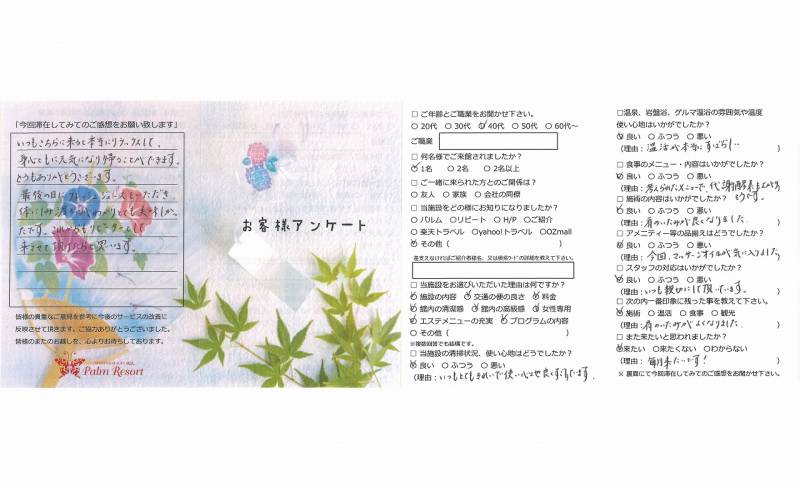 「今回滞在してみてのご感想をお願い致します」
いつもこちらに来ると本当にリラックスして、
身心ともに元気になり帰ることができます。
とうもありがとうございます。
最後の日に
体に
たです。これからもリピーターとして
来させて頂けたらと思います。
皆様の貴重なご意見を参考に今後のサービスの改善に
反映させて頂きます。ご協力ありがとうございました。
皆様のまたのお越しを、心よりお待ちしております。
Palm Resort
お客様アンケート
□ ご年齢とご職業をお聞かせ下さい。
○ 20代 ○ 30代 ○ 40代 ○ 50代 ○ 60代～
ご職業
□ 何名様でご来館されましたか？
○ 1名 ○ 2名 ○ 2名以上
□ ご一緒に来られた方とのご関係は？
○ 友人 ○ 家族 ○ 会社の同僚
□ 当施設をどの様にお知りになりましたか？
○ パルム ○リピート ○ H/P ○ご紹介
○ 楽天トラベル ○yahoo!トラベル ○OZmall
○ その他（ ）
差支えなければご紹介者様名、又は検索ワードの詳細を教えて下さい。
□ 当施設をお選びいただいた理由は何ですか？
○ 施設の内容 ○ 交通の便の良さ ○ 料金
○ 館内の清潔感 ○ 館内の高級感 ○ 女性専用
○ エステメニューの充実 ○ プログラムの内容
○ その他（ ）
※複数回答でも結構です。
□ 当施設の清掃状況、使い心地はどうでしたか？
○ 良い ○ ふつう ○ 悪い
（理由：いつもとてもきれいで使い心地良くすごせています。
□温泉、岩盤浴、ゲルマ温浴の雰囲気や温度
使い心地はいかがでしたか？
○ 良い ○ ふつう ○ 悪い
（理由：温活が本当にすばらしい ）
□ 食事のメニュー・内容はいかがでしたか？
○ 良い ○ ふつう ○ 悪い
（理由：考えられたメニューで、代謝
□ 施術の内容はいかがでしたか？
○ 良い ○ ふつう ○ 悪い
（理由：肩のいたみが良くなりました ）
□ アメニティー等の品揃えはどうでしたか？
○ 良い ○ ふつう ○ 悪い
（理由：今回、マッサージオイルが気に入りました
□ スタッフの対応はいかがでしたか？
○ 良い ○ ふつう ○ 悪い
（理由：いつも親切にして頂いています。 ）
□ 次の内一番印象に残った事を教えて下さい。
○ 施術 ○ 温活 ○ 食事 ○ 観光
（理由：肩のいたみがよくなりました ）
□ また来たいと思われましたか？
○来たい ○来たくない ○わからない
（理由：毎月来たいです！ ）
※ 裏面にて今回滞在してみてのご感想をお聞かせ下さい。